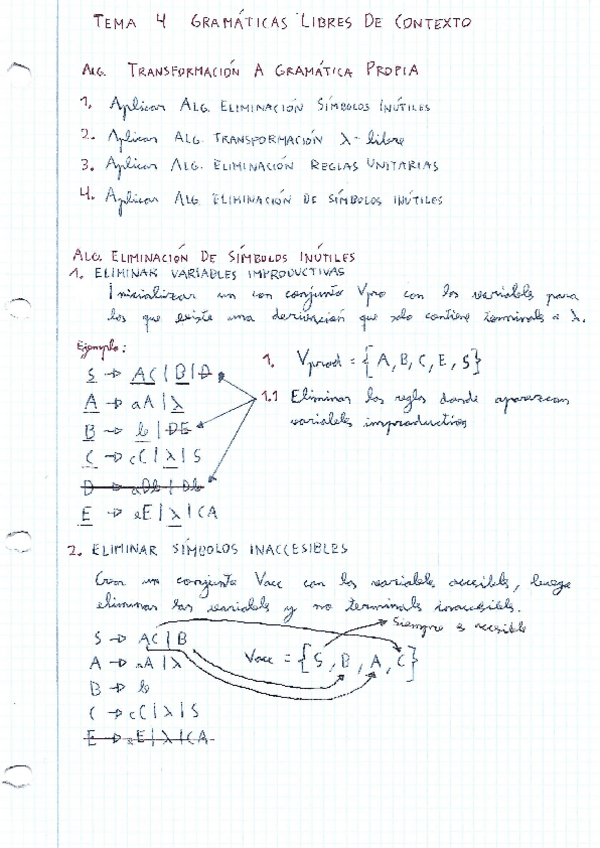 TEMA 4 GRAMÁTICAS LIBRES DE CONTEXTO
ALG. TRANSFORMACIÓN A GRAMÁTICA PROPIA
1. Aplicar ALG. ELIMINACIÓN SÍMBOLOS INÚTILES
2. Aplicar ALG. TRANSFORMACIÓN λ-libre
3. Aplicar ALG. ELIMINACIÓN REGLAS UNITARIAS
4. Aplicar ALG ELIMINACIÓN DE SÍMBOLOS INÚTILES
ALG. ELIMINACIÓN DE SÍMBOLOS INÚTILES
1. ELIMINAR VARIABLES IMPRODUCTIVAS
Inicializar un con conjunto Vpro con las variables para
las que existe una derivación que solo contiene terminales o λ.
Ejemplo:
S → AC | B | D
A → aA | λ
B → b | DE
C → cC | λ | S
D → aDb | Db
E → eE | λ | CA
1. Vprod = { A, B, C, E, S }
1.1 Eliminar las reglas donde aparezcan
variables improductivas
2. ELIMINAR SÍMBOLOS INACCESIBLES
Crear un conjunto Vacc con las variables accesibles, luego
eliminar las variables y no terminales inaccesibles.
Siempre es accesible
S → AC | B
A → aA | λ
B → b
C → cC | λ | S
E → eE | λ | CA
Vacc = { S, B, A, C }